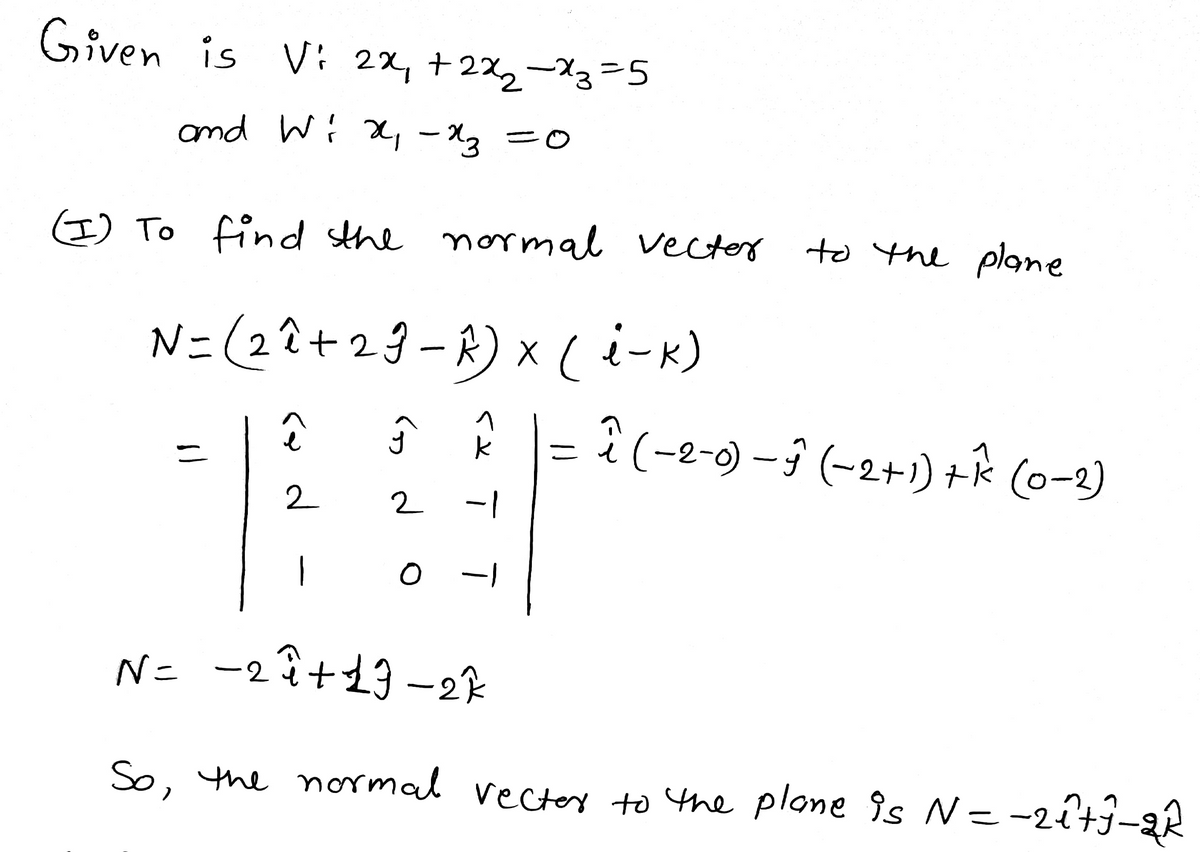 Given is V: 2x₁ + 2x₂ - x₃ = 5
and W: x₁ - x₃ = 0
(I) To find the normal vector to the plane
N = (2î + 2ĵ - k̂) × (i - k)
= | î ĵ k̂ | = î (-2-0) - ĵ (-2+1) + k̂ (0-2)
2 2 -1
1 0 -1
N = -2î + 1ĵ - 2k̂
So, the normal vector to the plane is N = -2î + ĵ - 2k̂